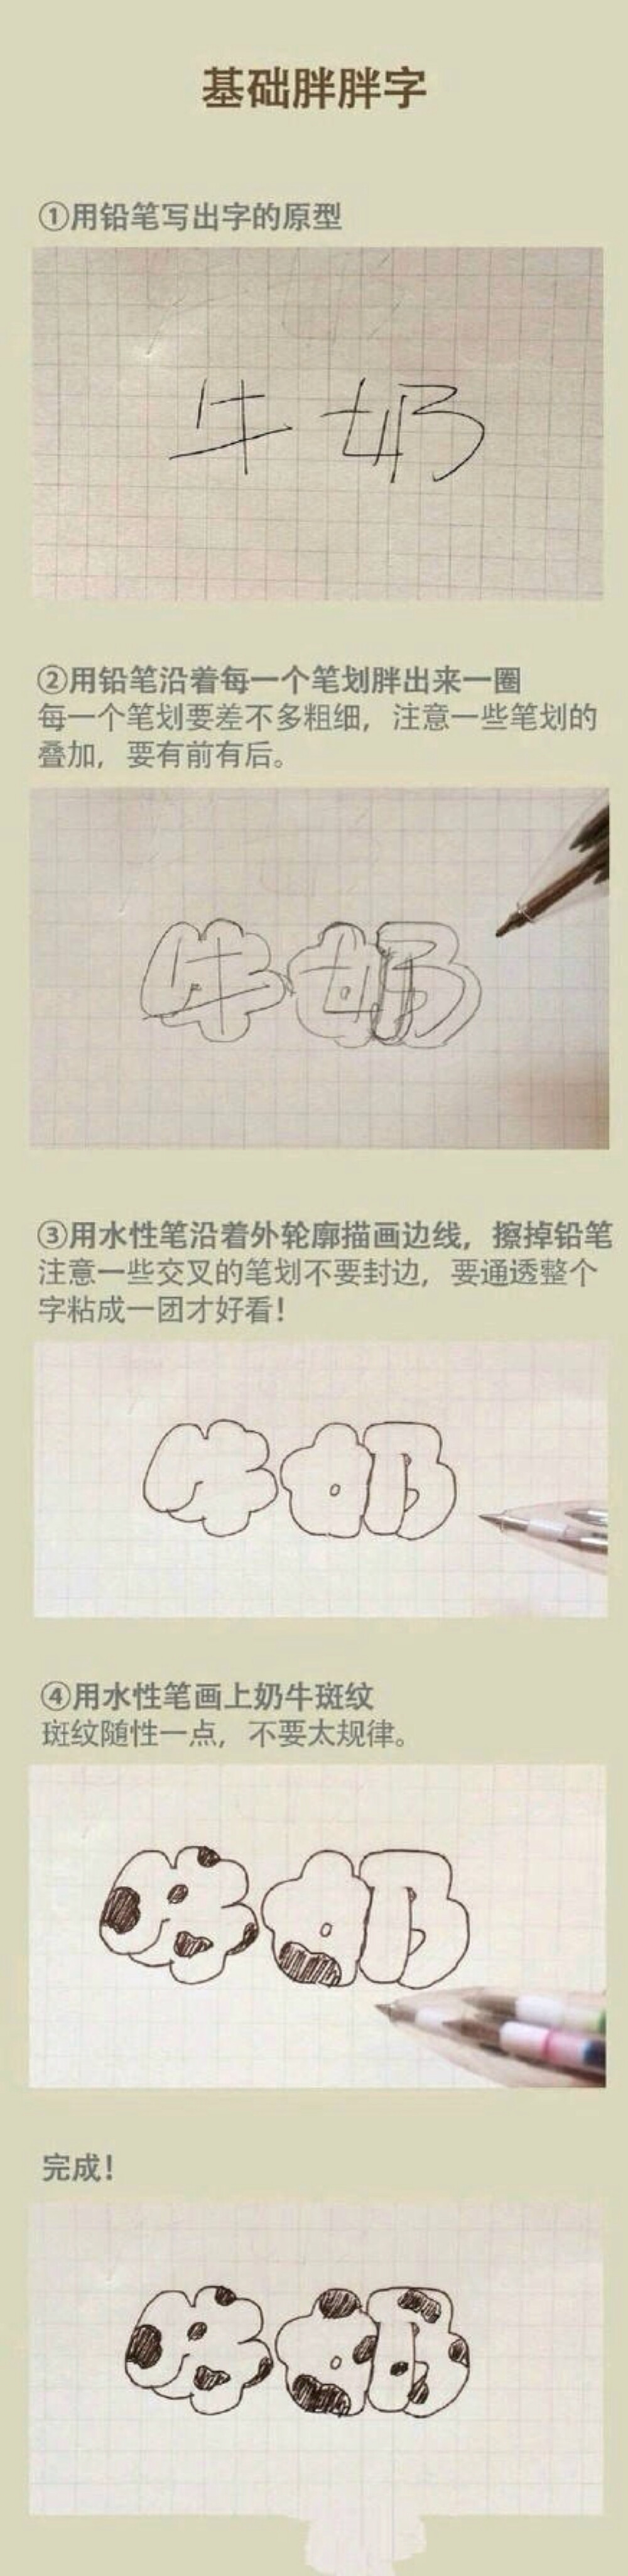 基础胖胖字
①用铅笔写出字的原型
牛奶
②用铅笔沿着每一个笔划胖出来一圈
每一个笔划要差不多粗细，注意一些笔划的
叠加，要有前有后。
牛奶
③用水性笔沿着外轮廓描画边线，擦掉铅笔
注意一些交叉的笔划不要封边，要通透整个
字粘成一团才好看！
牛奶
④用水性笔画上奶牛斑纹
斑纹随性一点，不要太规律。
牛奶
完成！
牛奶